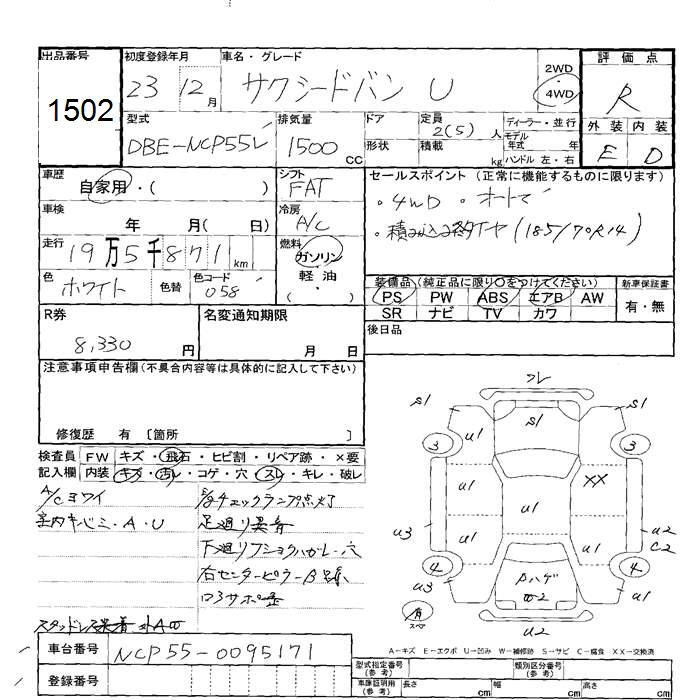 出品番号 初度登録年月 車名・グレード 評価点
1502 23 12月 サクシードバン U 2WD・4WD R
型式 排気量 ドア 定員 ディーラー・並行 外装 内装
DBE-NCP55V 1500CC 形状 2(5)人 積載 kg モデル年式 年 ハンドル 左・右 E D
車歴 シフト セールスポイント(正常に機能するものに限ります)
自家用・( ) FAT ・4WD ・オートマ
車検 冷房
年 月( 日) A/C ・積み込み タイヤ(185/70R14)
走行 燃料
19万5千871km ガソリン
色 色替 色コード 軽油 装備品(純正品に限り○をつけてください) 新車保証書
ホワイト 058 ・( ) PS PW ABS エアB AW 有・無
SR ナビ TV カワ
R券 名変通知期限 後日品
8,330円 月 日
注意事項申告欄(不具合内容等は具体的に記入して下さい)
修復歴 有 〔箇所 〕
検査員記入欄 FW キズ・飛石・ヒビ割・リペア跡・×要
内装 キズ・汚レ・コゲ・穴・スレ・キレ・破レ
A/Cヨワイ
室内キバミ・A・U
チェックランプ点灯
足廻り異音
下廻り ・穴
右センターピラーB
スタッドレス装着
フレ
S1 S1 S1
3 U1 3
U1 XX
U3 U1 U2 C2
U1 U1
4 Pハゲ W2 4
U3 U1
スペア U2
A-キズ E-エクボ U-凹み W-補修跡 S-サビ C-腐食 XX-交換済
車台番号 NCP55-0095171
登録番号
型式指定番号(参考) 類別区分番号(参考)
車庫証明用(参考) 長さ cm 幅 cm 高さ cm